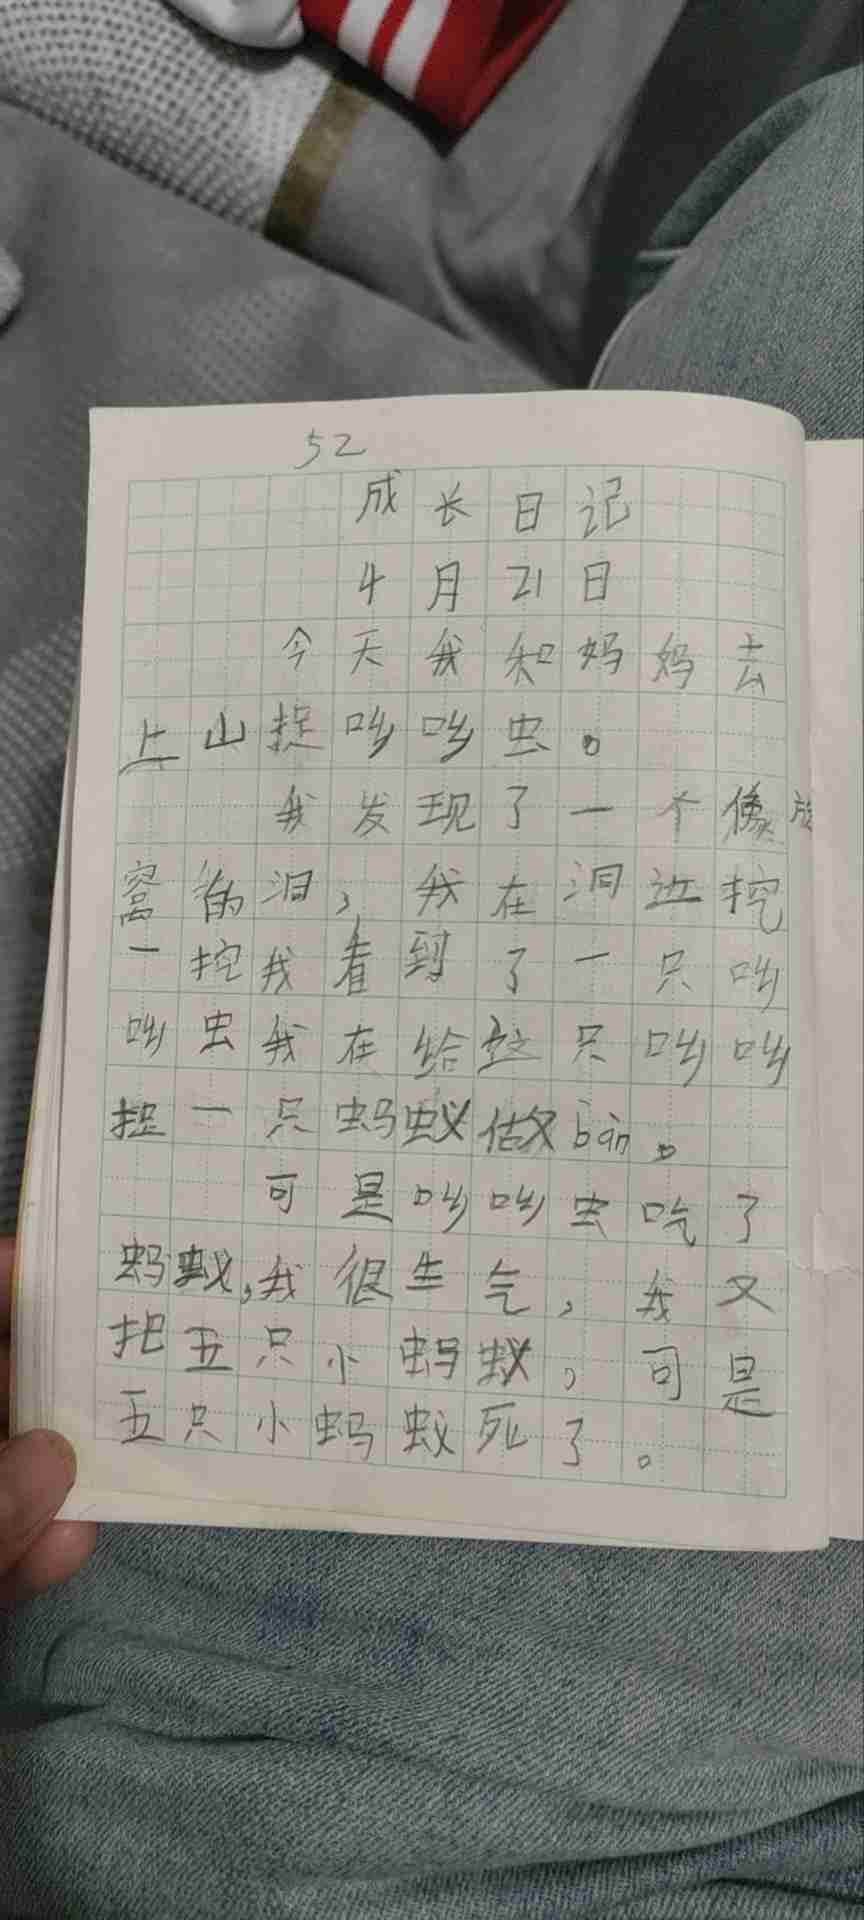 52
成长日记
4月21日
今天我和妈妈去
上山捉呦呦虫。
我发现了一个像
窝的洞，我在洞边挖
一挖我看到了一只呦
呦虫我在给这只呦呦
捉一只蚂蚁做bàn。
可是呦呦虫吃了
蚂蚁,我很生气，我又
把五只小蚂蚁，可是
五只小蚂蚁死了。